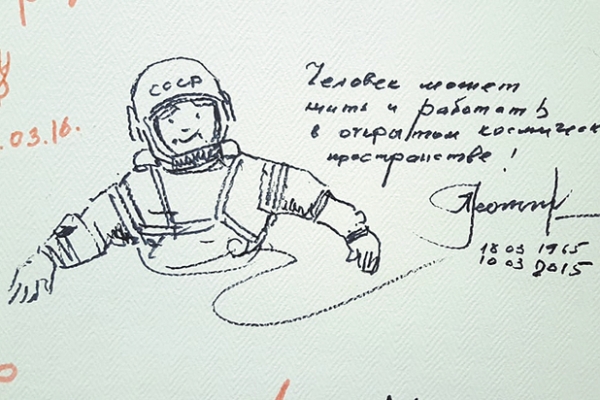 СССР
Человек может
жить и работать
в открытом космическ
пространстве!
Леонов
18 03 1965
10 03 2015
.03.16.